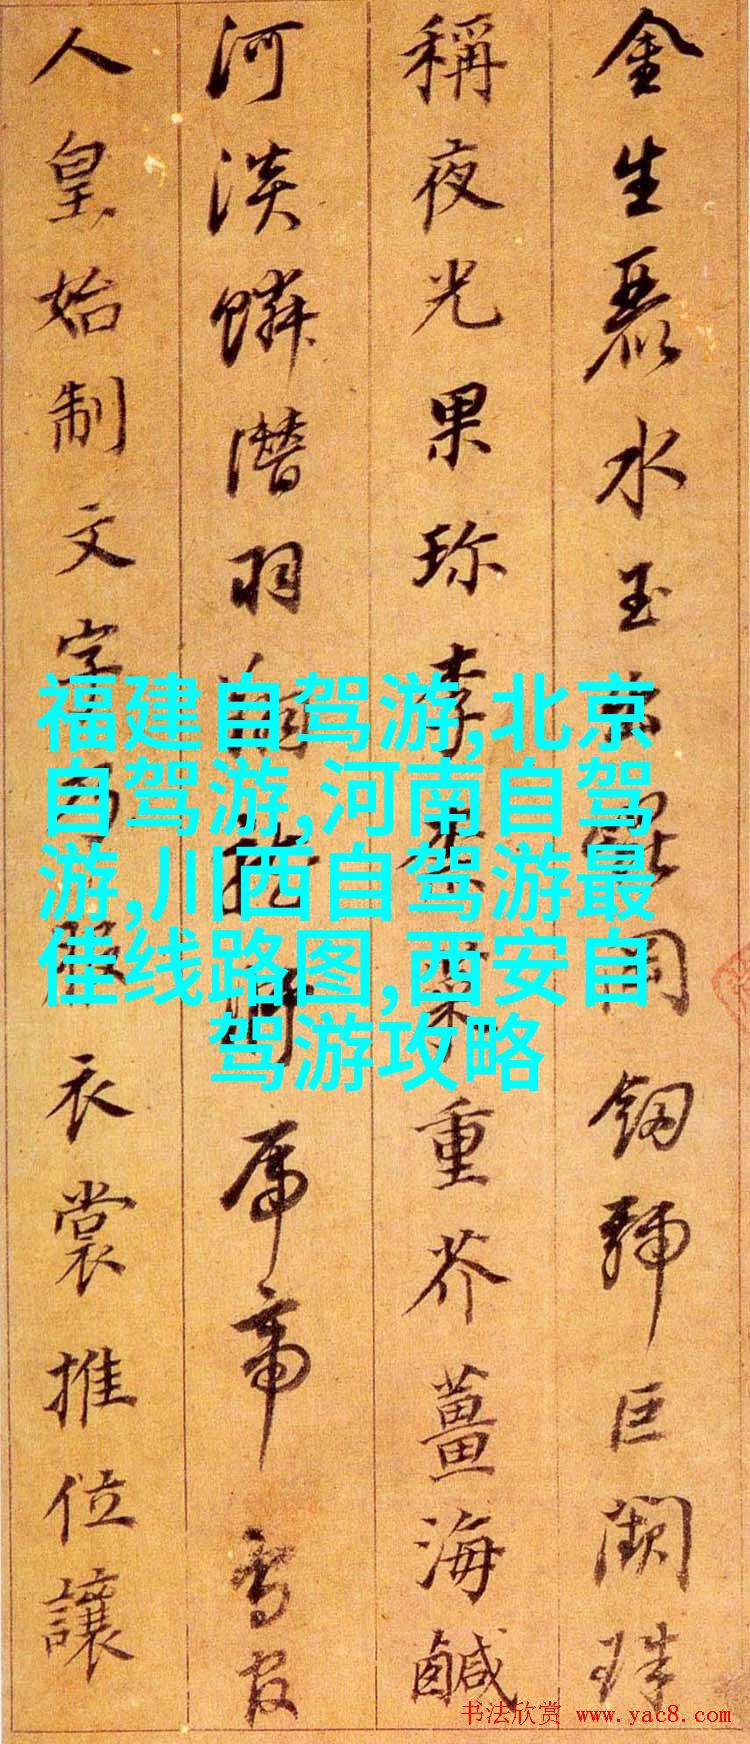 金生麗水玉出崐岡劒號巨闕珠
稱夜光果珍李柰菜重芥薑海鹹
河淡鱗潜羽翔龍師帝鳥官
人皇始制文字乃服衣裳推位讓
福建自驾游,北京
自驾游,河南自驾
游,川西自驾游最
佳线路图,西安自
驾游攻略
书法欣赏 www.yac8.com